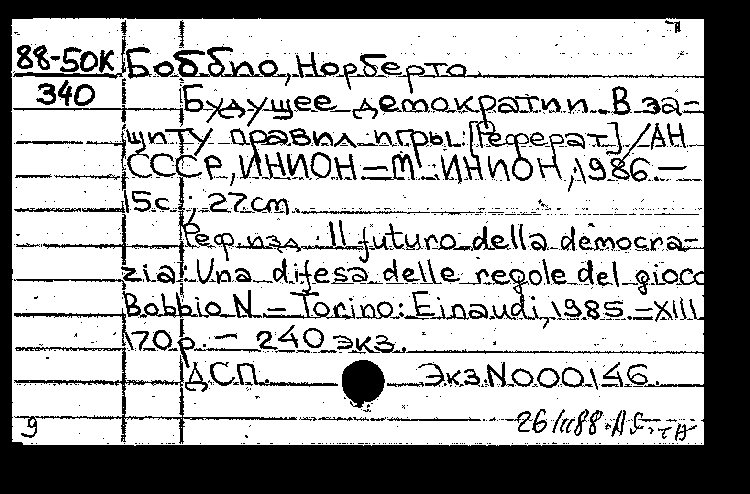 88-50К Боббио, Норберто.
340 Будущее демократии. В за-
щиту правил игры: [Реферат] / АН
СССР, ИНИОН. – М.: ИНИОН, 1986. –
15с.; 27cm.
Реф. изд.: Il futuro della democra-
zia: Una difesa delle regole del gioco
Bobbio N. – Torino: Einaudi, 1985. – XIII
170p. – 240 экз.
ДСП. Экз.N000146.
9